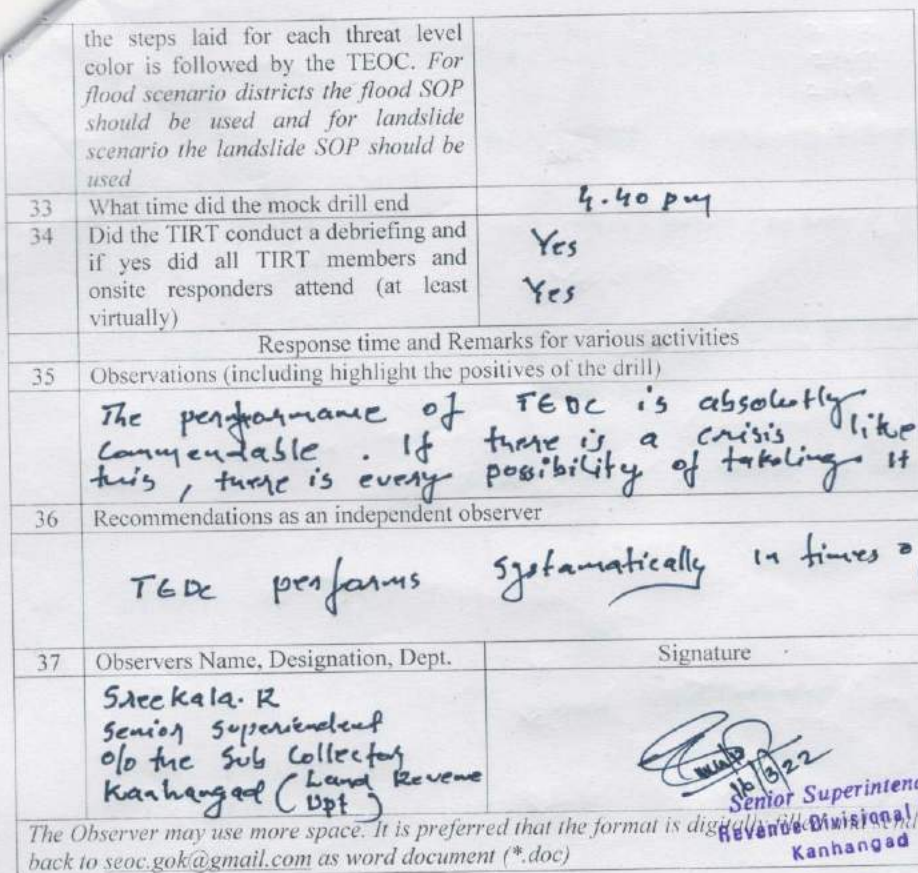 the steps laid for each threat level
color is followed by the TEOC. For
flood scenario districts the flood SOP
should be used and for landslide
scenario the landslide SOP should be
used
33 What time did the mock drill end 4.40 pm
34 Did the TIRT conduct a debriefing and Yes
if yes did all TIRT members and
onsite responders attend (at least Yes
virtually)
Response time and Remarks for various activities
35 Observations (including highlight the positives of the drill)
The performance of TEOC is absolutly
Commendable. If there is a crisis like
this, there is every possibility of takeling it
36 Recommendations as an independent observer
TEOC performs systamatically in times
37 Observers Name, Designation, Dept. Signature
Sreekala. R
Senior Superiendent
o/o the Sub Collector
Kanhangad (Land Revenue
Dpt)
16/3/22
Senior Superintend
Revenue Divisional
Kanhangad
The Observer may use more space. It is preferred that the format is digitally filled and send
back to seoc.gok@gmail.com as word document (*.doc)